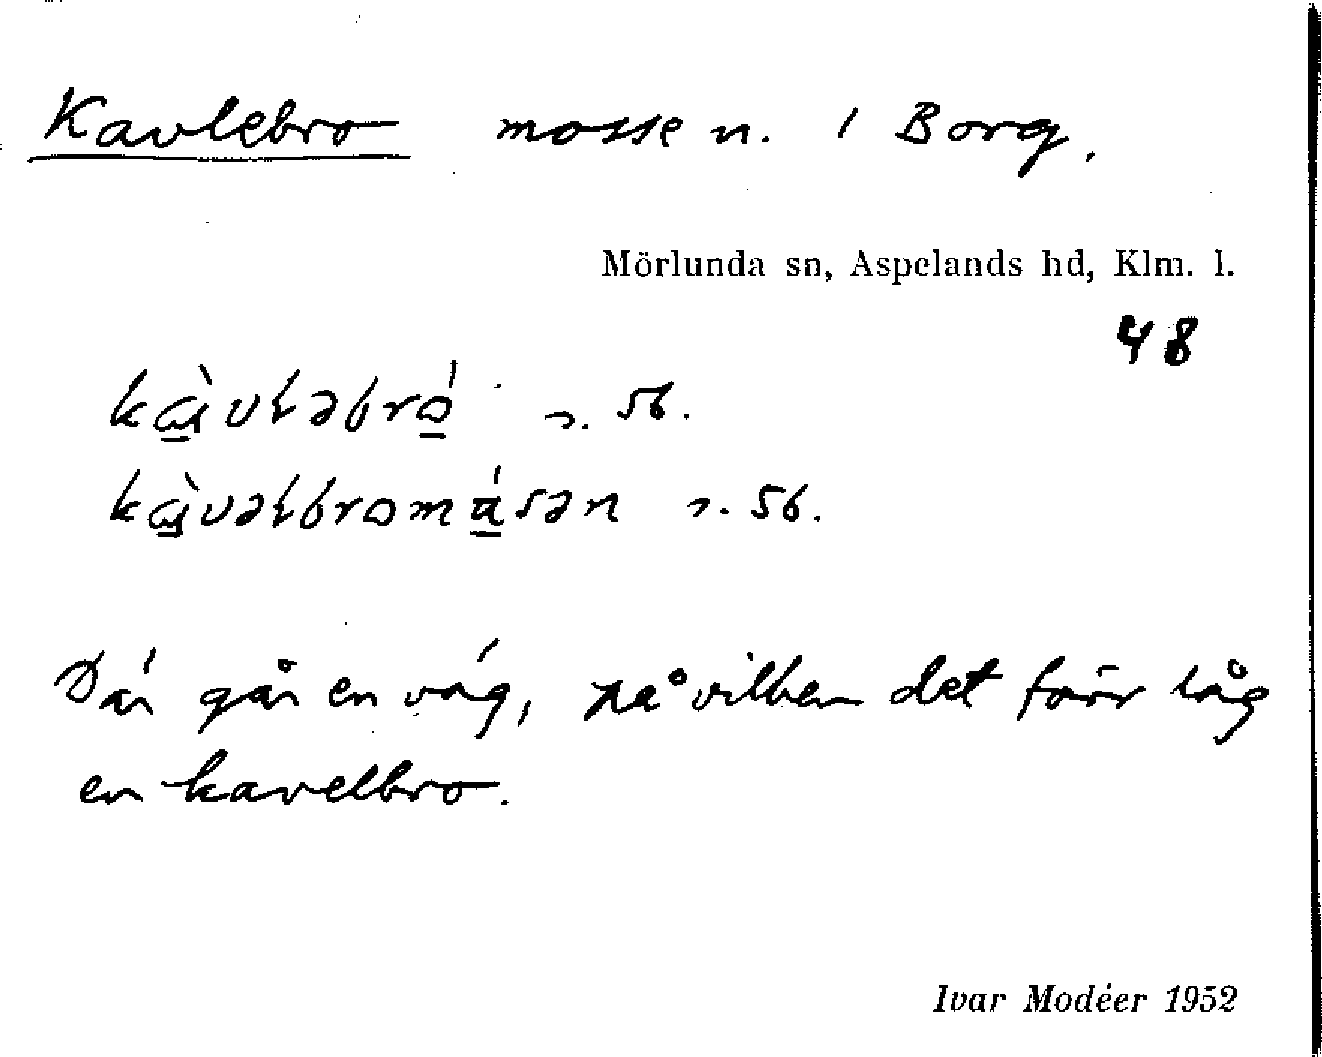 Kavlebro mosse n. / Borg.
Mörlunda sn, Aspelands hd, Klm. l.
48
kɑ̱̀vɫəbró̱ s. 56.
kɑ̱̀vəɫbromá̱sən s. 56.
Där går en väg, på vilken det förr låg
en kavelbro.
Ivar Modéer 1952